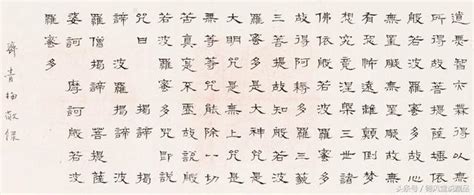 道無智亦無得以無
所得故菩提薩埵依
般若波羅蜜多故心
無罣礙無罣礙故無
有恐怖遠離顛倒夢
想究竟涅槃三世諸
佛依般若波羅蜜多
故得阿耨多羅三藐
三菩提故知般若波
羅蜜多是大神咒是
大明咒是無上咒是
無等等咒能除一切
苦真實不虛故說般
若波羅蜜多咒即說
咒曰 揭諦揭
諦波羅揭諦波
羅僧揭諦菩提薩
婆訶 摩訶般若波
羅蜜多
头条号